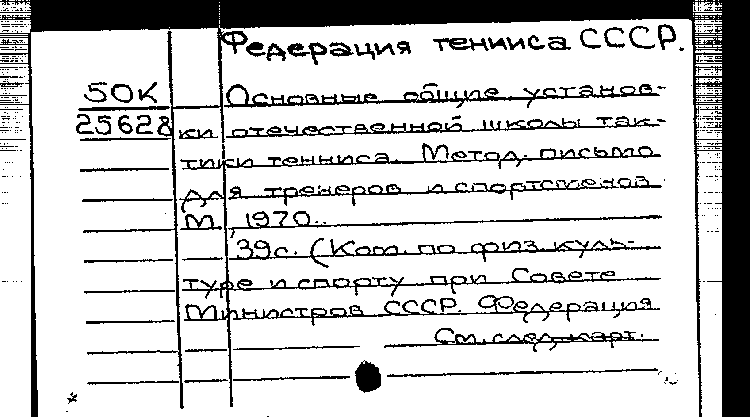 Федерация тенниса СССР.
50К Основные общие установ-
25628 ки отечественной школы так-
тики тенниса. Метод. письмо
для тренеров и спортсменов
М, 1970.
39с. (Ком. по физ. куль-
туре и спорту при Совете
Министров СССР. Федерация
См. след. карт.